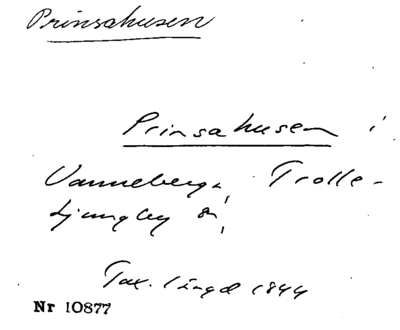 Prinsahusen
Prinsahusen i
Vanneberga, Trolle-
Ljungby sn,
Tax. längd 1844
Nr 10877